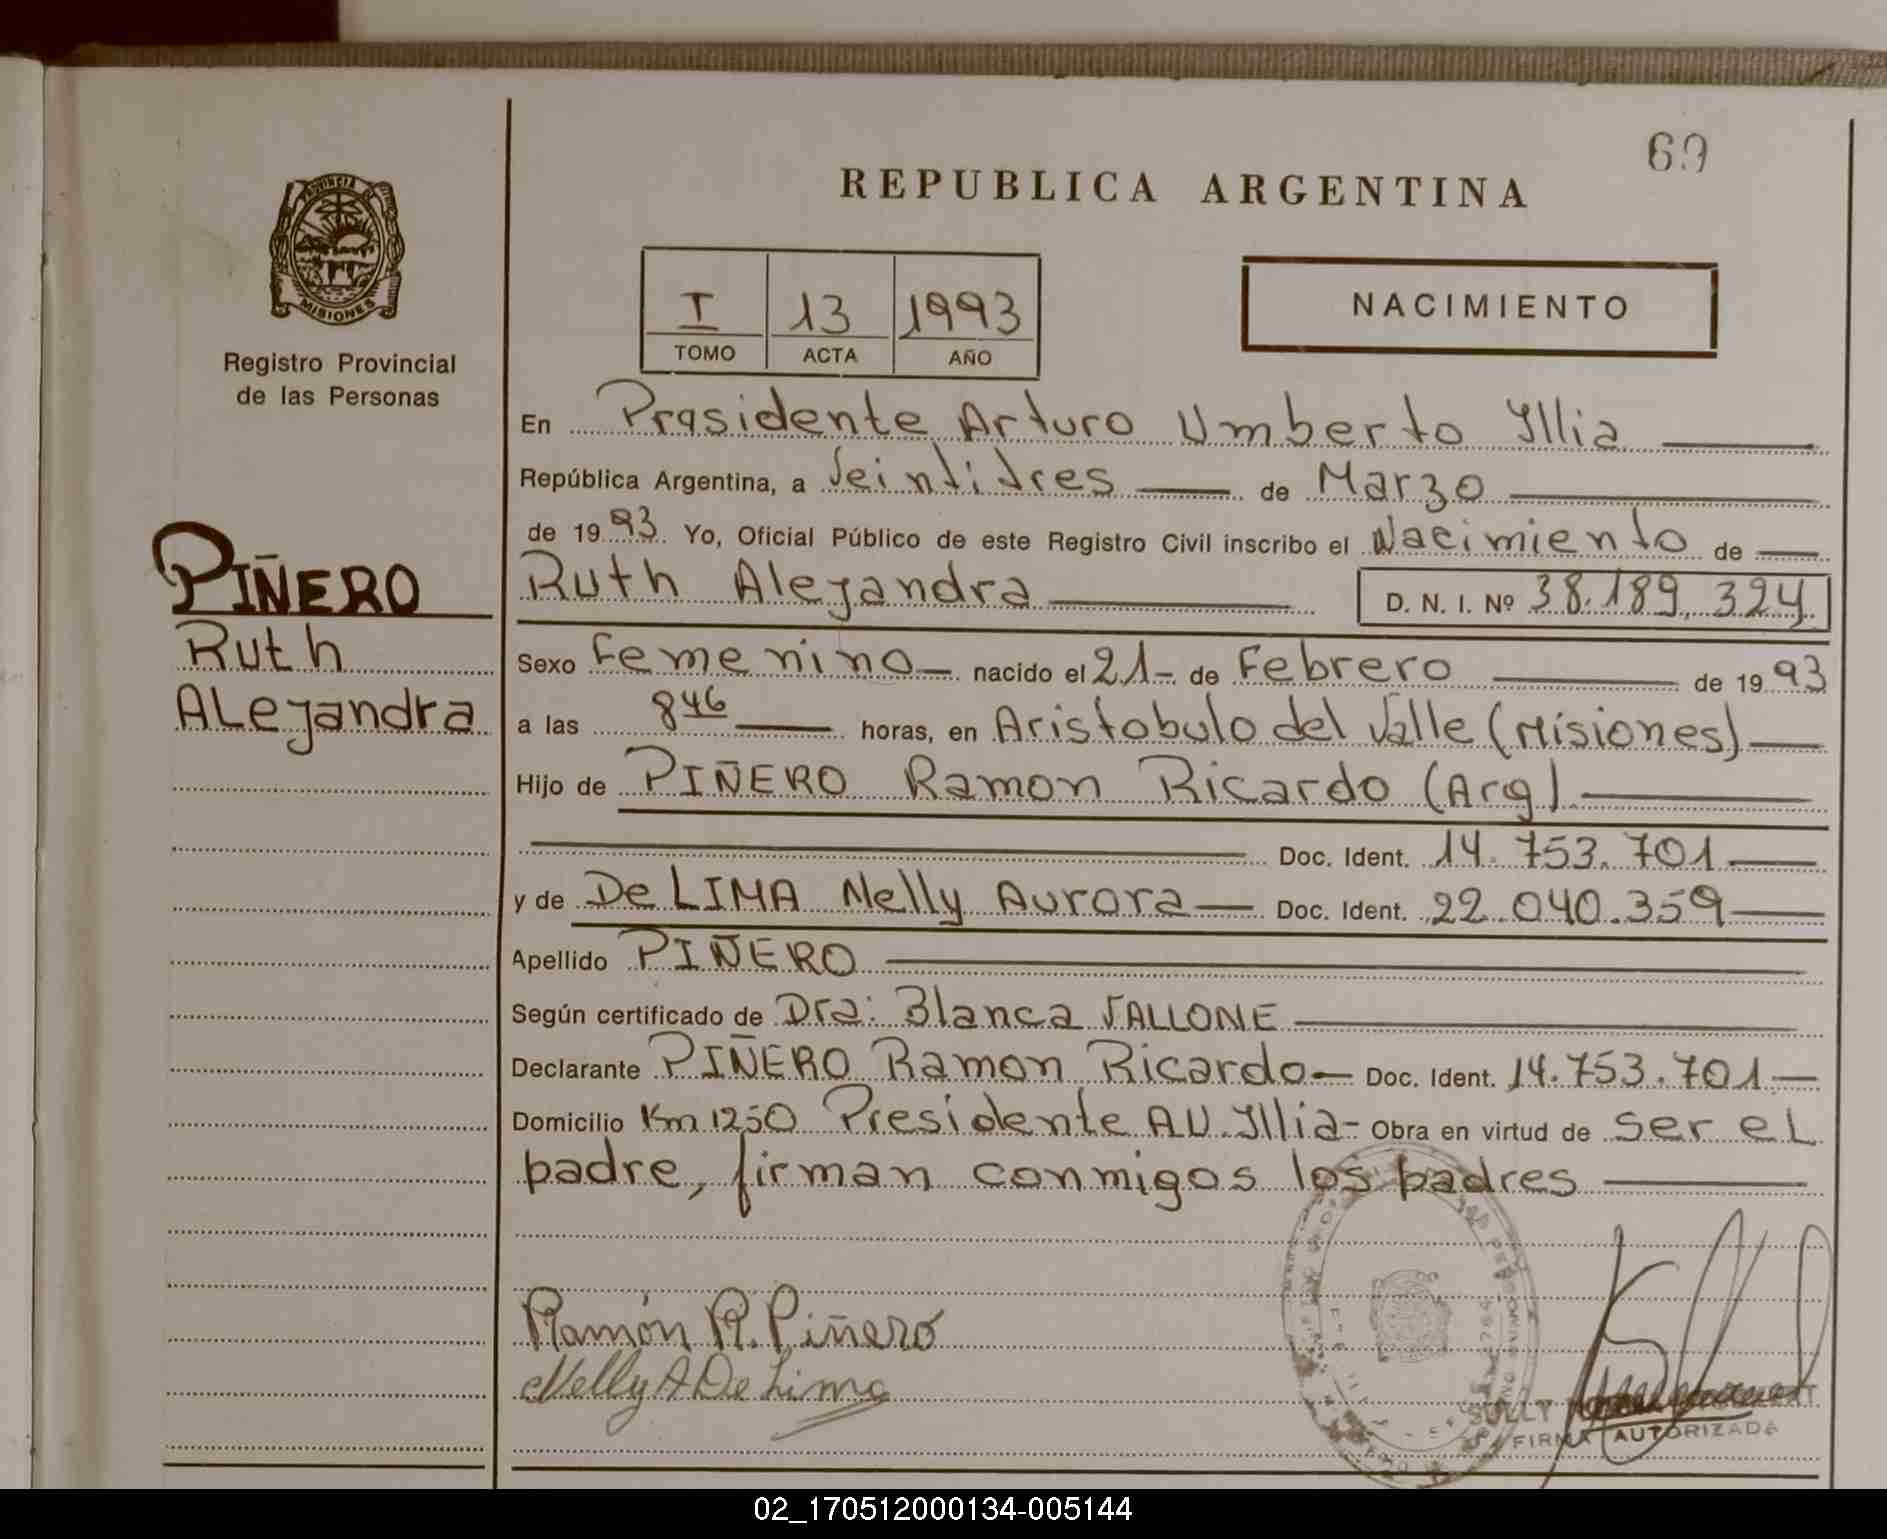 69
REPUBLICA ARGENTINA
PROVINCIA DE
MISIONES
Registro Provincial
de las Personas
I 13 1993
TOMO ACTA AÑO
NACIMIENTO
PIÑERO
Ruth
Alejandra
En Presidente Arturo Umberto Illia
República Argentina, a Veintitres de Marzo
de 1993 Yo, Oficial Público de este Registro Civil inscribo el Nacimiento de
Ruth Alejandra D. N. I. Nº 38.189.324
Sexo Femenino nacido el 21 de Febrero de 1993
a las 8 46 horas, en Aristobulo del Valle (Misiones)
Hijo de PIÑERO Ramon Ricardo (Arg)
Doc. Ident. 14.753.701
y de De LIMA Nelly Aurora Doc. Ident. 22.040.359
Apellido PIÑERO
Según certificado de Dra: Blanca VALLONE
Declarante PIÑERO Ramon Ricardo Doc. Ident. 14.753.701
Domicilio Km 1250 Presidente A.U. Illia - Obra en virtud de ser el
padre, firman conmigos los padres
Ramón R. Piñero
Nelly A De Lima
SULLY
FIRMA AUTORIZADA
02_170512000134-005144